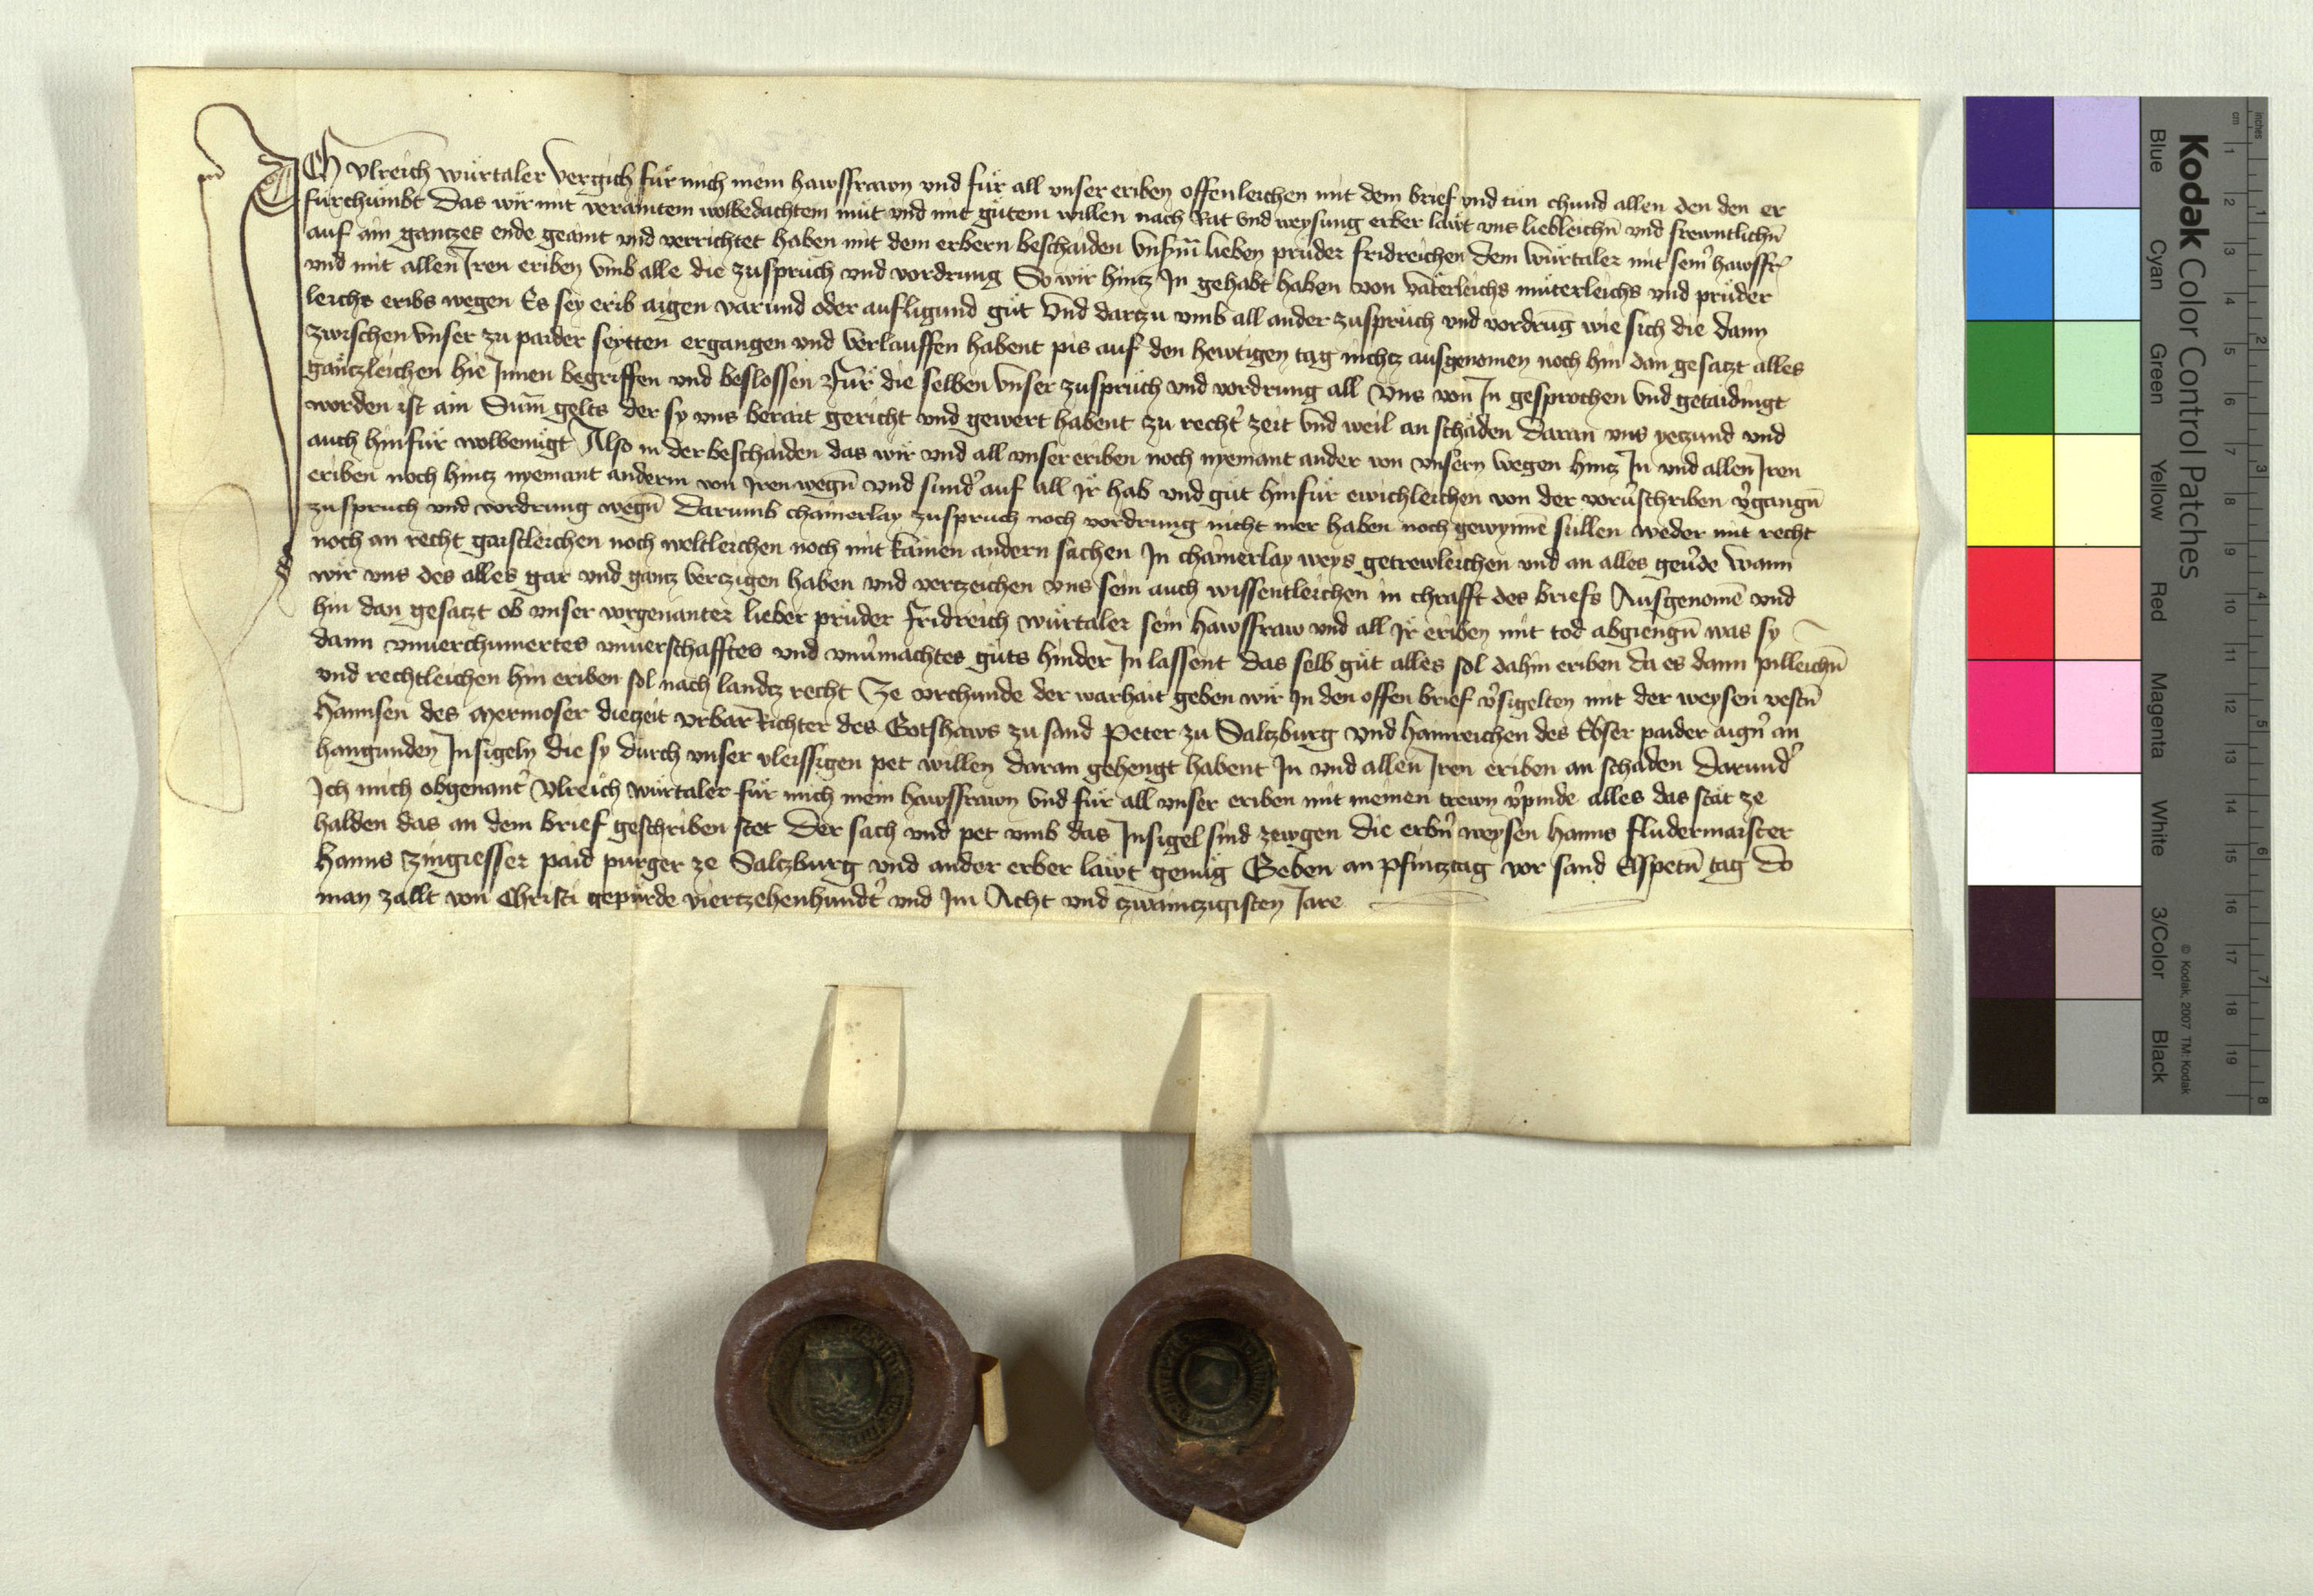 ICh Vlreich würtaler vergich für mich mein hawsfrawn vnd für all vnser eriben offenleichen mit dem brief vnd tün chund allen den den er
fürchümbt Das wir mit veraintem wolbedachtem müt vnd mit gütem willen nach Rat vnd weysung erber läwt vns liebleichn̄ vnd frewntlichn̄
auf ain gantzes ende geaint vnd verrichtet haben mit dem erbern beschaiden vnsm̄ lieben prüder fridreichen dem würtaler mit sein̓ hawsfr
vnd mit allen Iren eriben vmb alle die zusprüch vnd vordrung So wir hintz In gehabt haben von väterleichs müterleichs vnd prüder
leichs eribs wegen Es sey erib aigen varund oder aufligund güt Vnd dartzu vmb all ander zusprüch vnd vordrūg wie sich die dann
zwischen vnser zu paider seytten ergangen vnd verlauffen habent pis auf den hewtigen tag nichtz ausgenomen noch hin dan gesatzt alles
gäntzleichen hie Innen begriffen vnd beslossen Für die selben vnser zusprüch vnd vordrung all Vns von In gesprochen vnd getaidingt
worden ist ain Sum̄ gelts der sy vns berait gericht vnd gewert habent zu recht̓ zeit vnd weil an schäden Daran vns yetzund vnd
auch hinfür wolbenügt Also in der beschaiden das wir vnd all vnser eriben noch nyemant ander von vnsern wegen hintz In vnd allen Iren
eriben noch hintz nyemant anderm von Iren wegn̄ vnd sund̓ auf all Ir hab vnd güt hinfür ewichleichen von der vorv̓schriben v̓gangn̄
zuspruch vnd vordrung wegn̄ Darumb chainerlay zuspruch noch vordrung nicht mer haben noch gewynnē sullen weder mit recht
noch an recht gaistleichen noch weltleichen noch mit kainen andern sachen In chainerlay weys getrewleichen vnd an alles gev̓de Wann
wir vns des alles gar vnd gantz vertzigen haben vnd vertzeichen vns sein auch wissentleichen in chrafft des briefs Ausgenomē vnd
hin dan gesatzt ob vnser vorgenanter lieber prüder Fridreich würtaler sein hawsfraw vnd all Ir eriben mit tod abgiengn̄ was sy
dann vnuerchumertes vnuerschafftes vnd vnv̓machtes güts hinder In lassent das selb güt alles sol dahin eriben da es dann pilleichn̄
vnd rechtleichen hin eriben sol nach landtz recht Ze vrchunde der warhait geben wir In den offen brief v̓sigelten mit der weysen vestn̄
Hannsen des Mermoser dietzeit vrbar Richter des Gotshaws zu sand Peter zu Saltzburg vnd Hainreichen des Ebser paider aign̓ an
hangunden Insigeln die sy durch vnser vleissigen pet willen daran gehengt habent In vnd allen Iren eriben an schaden Darund̓
Ich mich obgenant̓ Vlreich würtaler für mich mein hawsfrawn vnd für all vnser eriben mit meinen trewn v̓pinde alles das stät ze
halden das an dem brief geschriben stet Der sach vnd pet vmb das Insigel sind zewgen die erbn̓ weysen Hanns fludermaister
Hanns Zingiesser paid purger ze Saltzburg vnd ander erber läwt genüg Geben an pfintztag vor sand Elspetn̄ tag Do
man zallt von Christi gepürde viertzehenhundt̓ vnd Im Acht vnd zwaintzigisten Jare
Kodak Color Control Patches
© Kodak, 2007 TM: Kodak
Blue Cyan Green Yellow Red Magenta White 3/Color Black
cm 1 2 3 4 5 6 7 8 9 10 11 12 13 14 15 16 17 18 19
inches 1 2 3 4 5 6 7 8